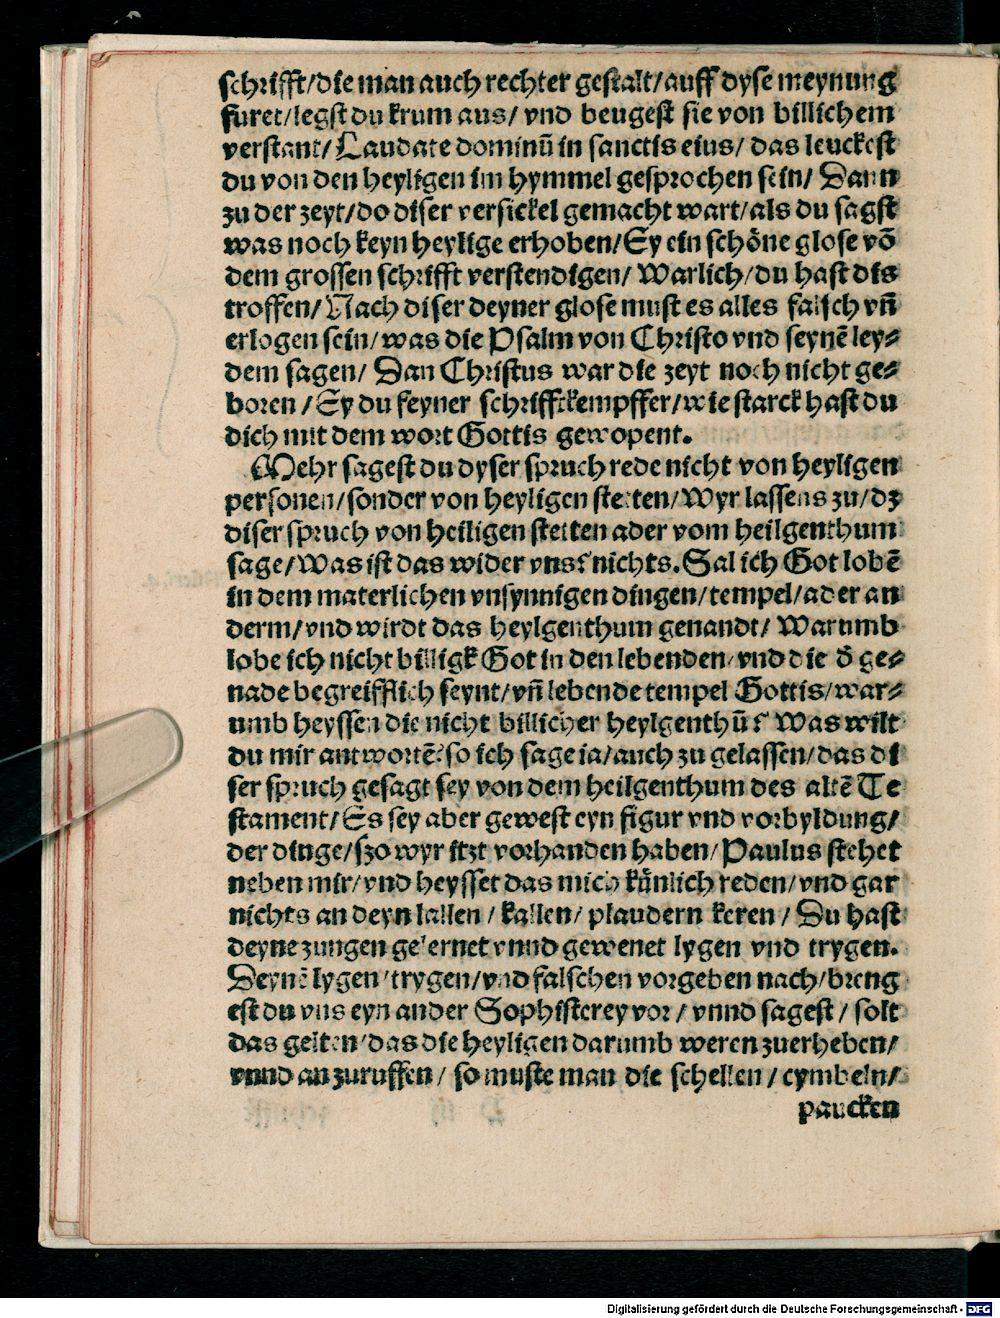 schrifft/die man auch rechter gestalt/auff dyse meynung
furet/legst du krum aus/ vnd beugest sie von billichem
verstant/ Laudate dominū in sanctis eius/ das leuckest
du von den heyligen im hymmel gesprochen sein/ Dann
zu der zeyt/do diser versickel gemacht wart/als du sagst
was noch keyn heylige erhoben/Ey ein schöne glose vō
dem grossen schrifft verstendigen/ Warlich/du hast dis
troffen/Nach diser deyner glose must es alles falsch vn̄
erlogen sein/was die Psalm von Christo vnd seynē ley⸗
dem sagen/ Dan Christus war die zeyt noch nicht ge⸗
boren /Ey du feyner schrifftkempffer/wie starck hast du
dich mit dem wort Gottis gewopent.
Mehr sagest du dyser spruch rede nicht von heyligen
personen/sonder von heyligen stetten/Wyr lassens zu/dz
diser spruch von heiligen stetten ader vom heilgenthum
sage/Was ist das wider vns? nichts. Sal ich Got lobē
in dem materlichen vnsynnigen dingen/tempel/ader an
derm/vnd wirdt das heylgenthum genandt/ Warumb
lobe ich nicht billigk Got in den lebenden/vnd die d̄ ge⸗
nade begreifflich seynt/vn̄ lebende tempel Gottis/war⸗
umb heyssen die nicht billicher heylgenthū? Was wilt
du mir antwortē?so ich sage ia/auch zu gelassen/das di
ser spruch gesagt sey von dem heilgenthum des altē Te
stament/Es sey aber gewest eyn figur vnd vorbyldung/
der dinge/szo wyr itzt vorhanden haben/Paulus stehet
neben mir/vnd heysset das mich künlich reden/vnd gar
nichts an deyn lallen / kallen/ plaudern keren / Du hast
deyne zungen gelernet vnnd gewenet lygen vnd trygen.
Deynē lygen/trygen/vnd falschen vorgeben nach/breng
est du vns eyn ander Sophisterey vor/ vnnd sagest/ solt
das gelten/das die heyligen darumb weren zuerheben/
vnnd anzuruffen/ so muste man die schellen/cymbeln/
paucken
Digitalisierung gefördert durch die Deutsche Forschungsgemeinschaft - DFG